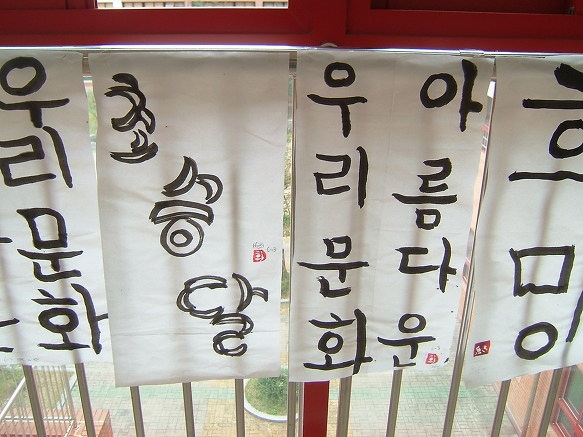 우리문화
초승달
아름다운
우리문화